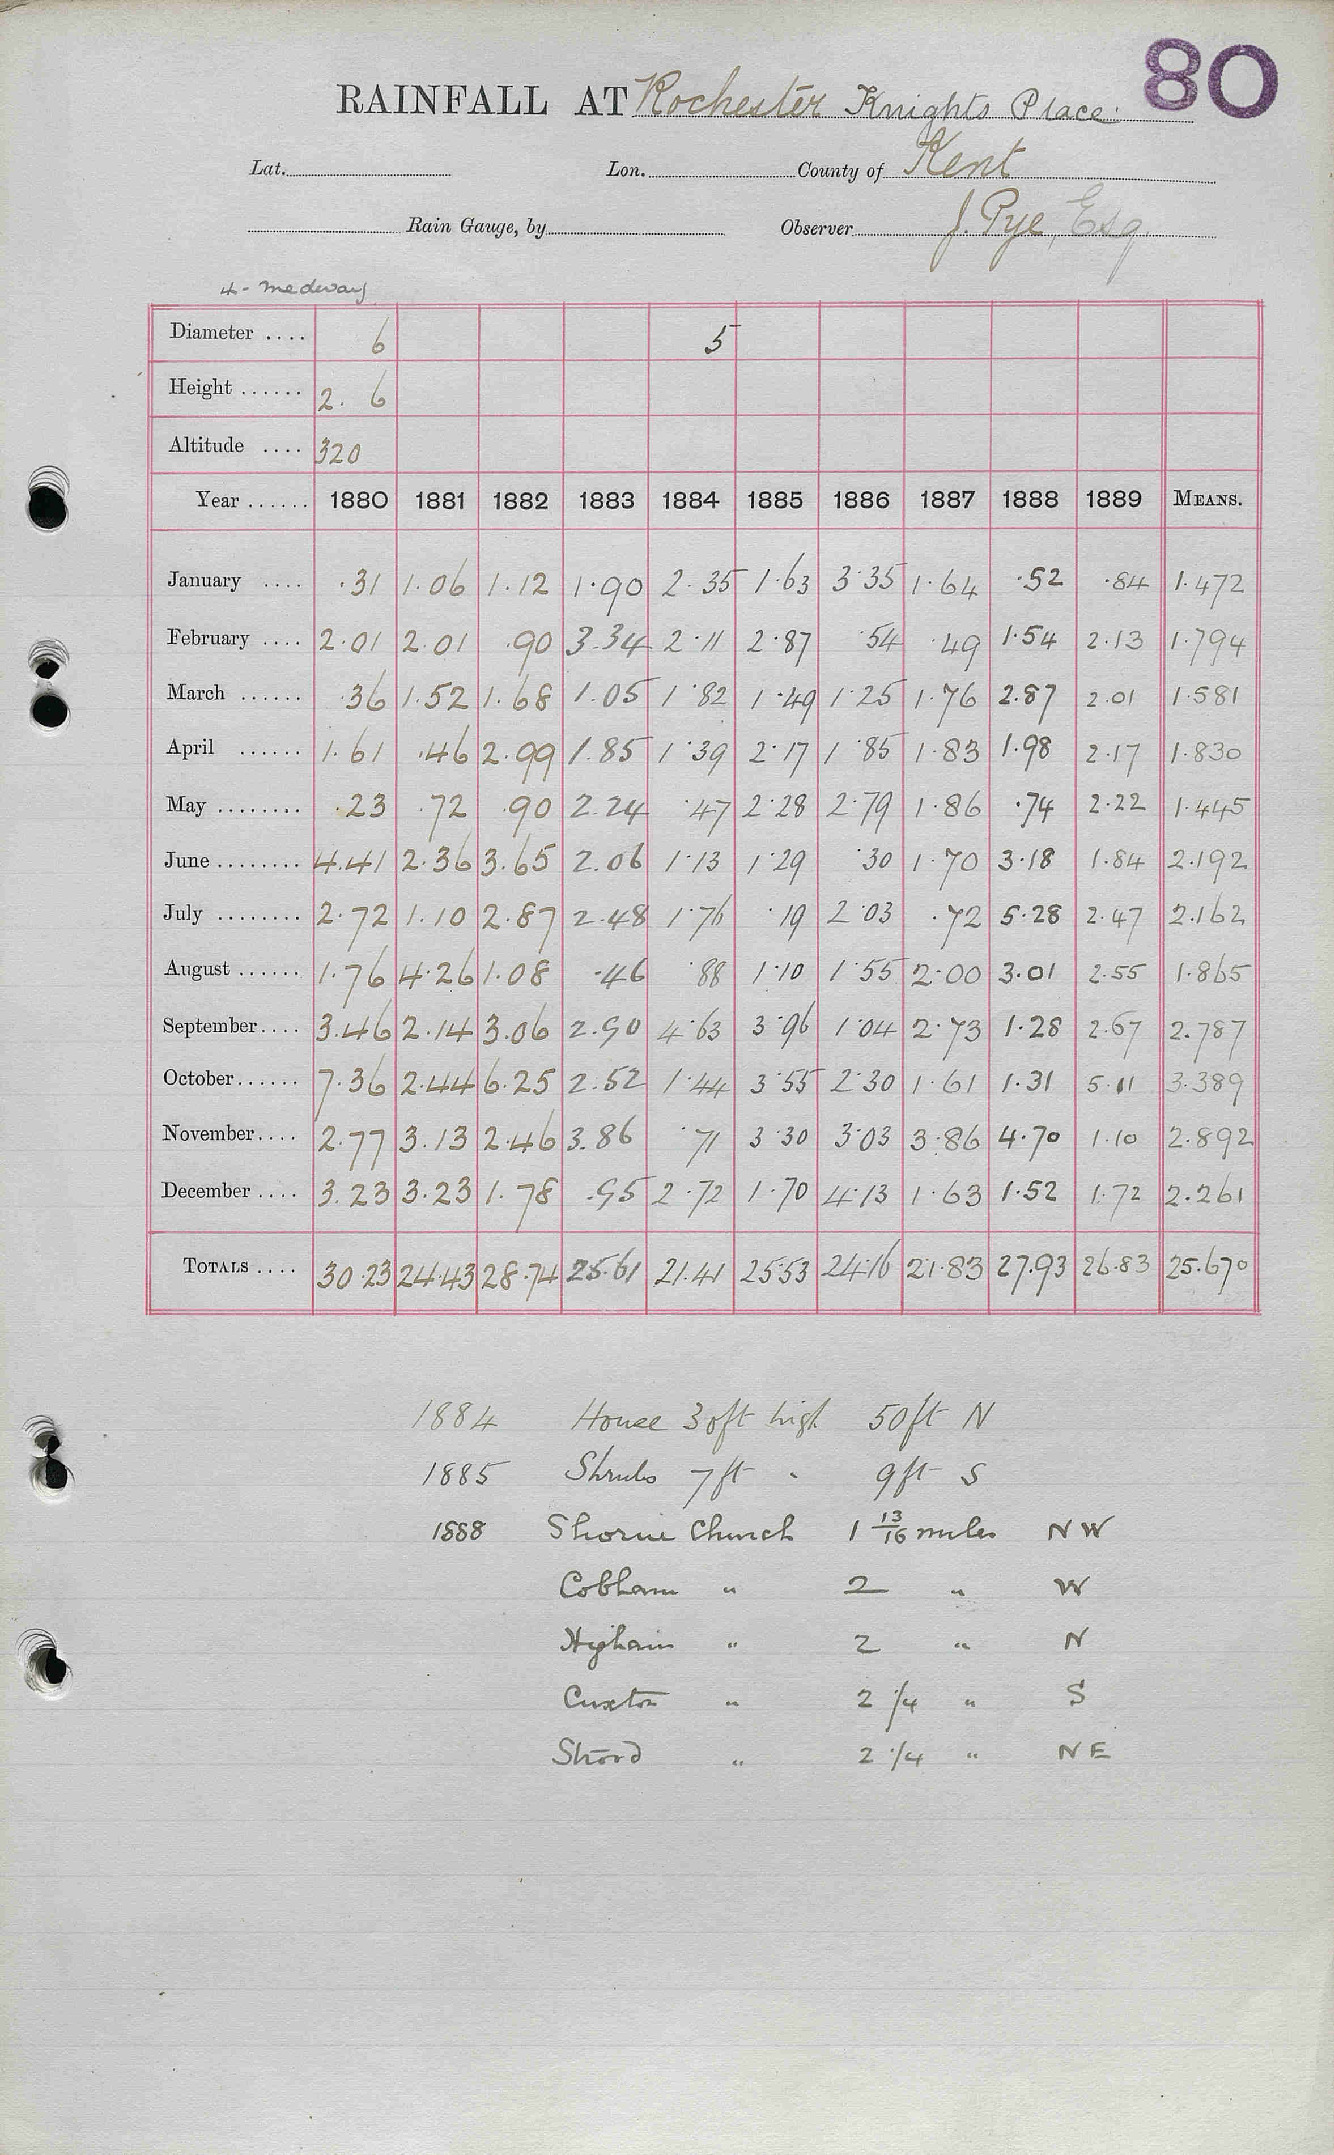 80
RAINFALL AT Rochester Knights Place
Lat. Lon. County of Kent
Rain Gauge, by Observer J. Pye, Esq
4 - Medway
Diameter .... 6 5
Height ...... 2. 6
Altitude .... 320
Year ...... 1880 1881 1882 1883 1884 1885 1886 1887 1888 1889 MEANS.
January .... .31 1.06 1.12 1.90 2.35 1.63 3.35 1.64 .52 .84 1.472
February .... 2.01 2.01 .90 3.34 2.11 2.87 .54 .49 1.54 2.13 1.794
March ...... .36 1.52 1.68 1.05 1.82 1.49 1.25 1.76 2.87 2.01 1.581
April ...... 1.61 .46 2.99 1.85 1.39 2.17 1.85 1.83 1.98 2.17 1.830
May ........ .23 .72 .90 2.24 .47 2.28 2.79 1.86 .74 2.22 1.445
June ........ 4.41 2.36 3.65 2.06 1.13 1.29 .30 1.70 3.18 1.84 2.192
July ........ 2.72 1.10 2.87 2.48 1.76 .19 2.03 .72 5.28 2.47 2.162
August ...... 1.76 4.26 1.08 .46 .88 1.10 1.55 2.00 3.01 2.55 1.865
September.... 3.46 2.14 3.06 2.90 4.63 3.96 1.04 2.73 1.28 2.67 2.787
October...... 7.36 2.44 6.25 2.52 1.44 3.55 2.30 1.61 1.31 5.11 3.389
November.... 2.77 3.13 2.46 3.86 .71 3.30 3.03 3.86 4.70 1.10 2.892
December .... 3.23 3.23 1.78 .95 2.72 1.70 4.13 1.63 1.52 1.72 2.261
TOTALS .... 30.23 24.43 28.74 25.61 21.41 25.53 24.16 21.83 27.93 26.83 25.670
1884 House 30ft high 50ft N
1885 Shrubs 7ft " 9ft S
1888 Shorne Church 1 13/16 miles NW
Cobham " 2 " W
Higham " 2 " N
Cuxton " 2 1/4 " S
Strood " 2 1/4 " NE